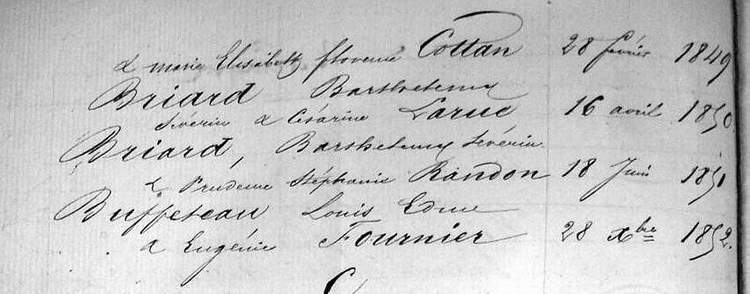 & marie Elisabeth florence Cottan 28 février 1849
Briard Barthelemy
Séverin & Césarine Laruc 16 avril 1850.
Briard, Barthelemy Séverin
& Prudence Stéphanie Randon 18 Juin 1851
Buffeteau Louis Edme
& Eugénie Fournier 28 xbre 1852.